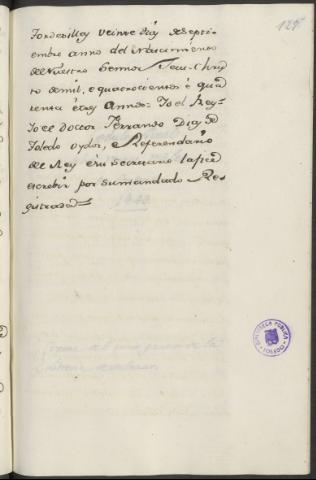 129
Tordesillas veinte dias de Septi-
embre anno del Nascimiento
de Nuestro Sennor Jesu-Chris
to de mil, e quatrocientos é quar
renta é tres Annos = Yo el Rey =
Yo el Doctor Ferrando Diaz de
Toledo oydor, e Referendario
del Rey é su Secretario la fice
escrebir por su mandado Re
gistrada =
BIBLIOTECA PUBLICA
TOLEDO